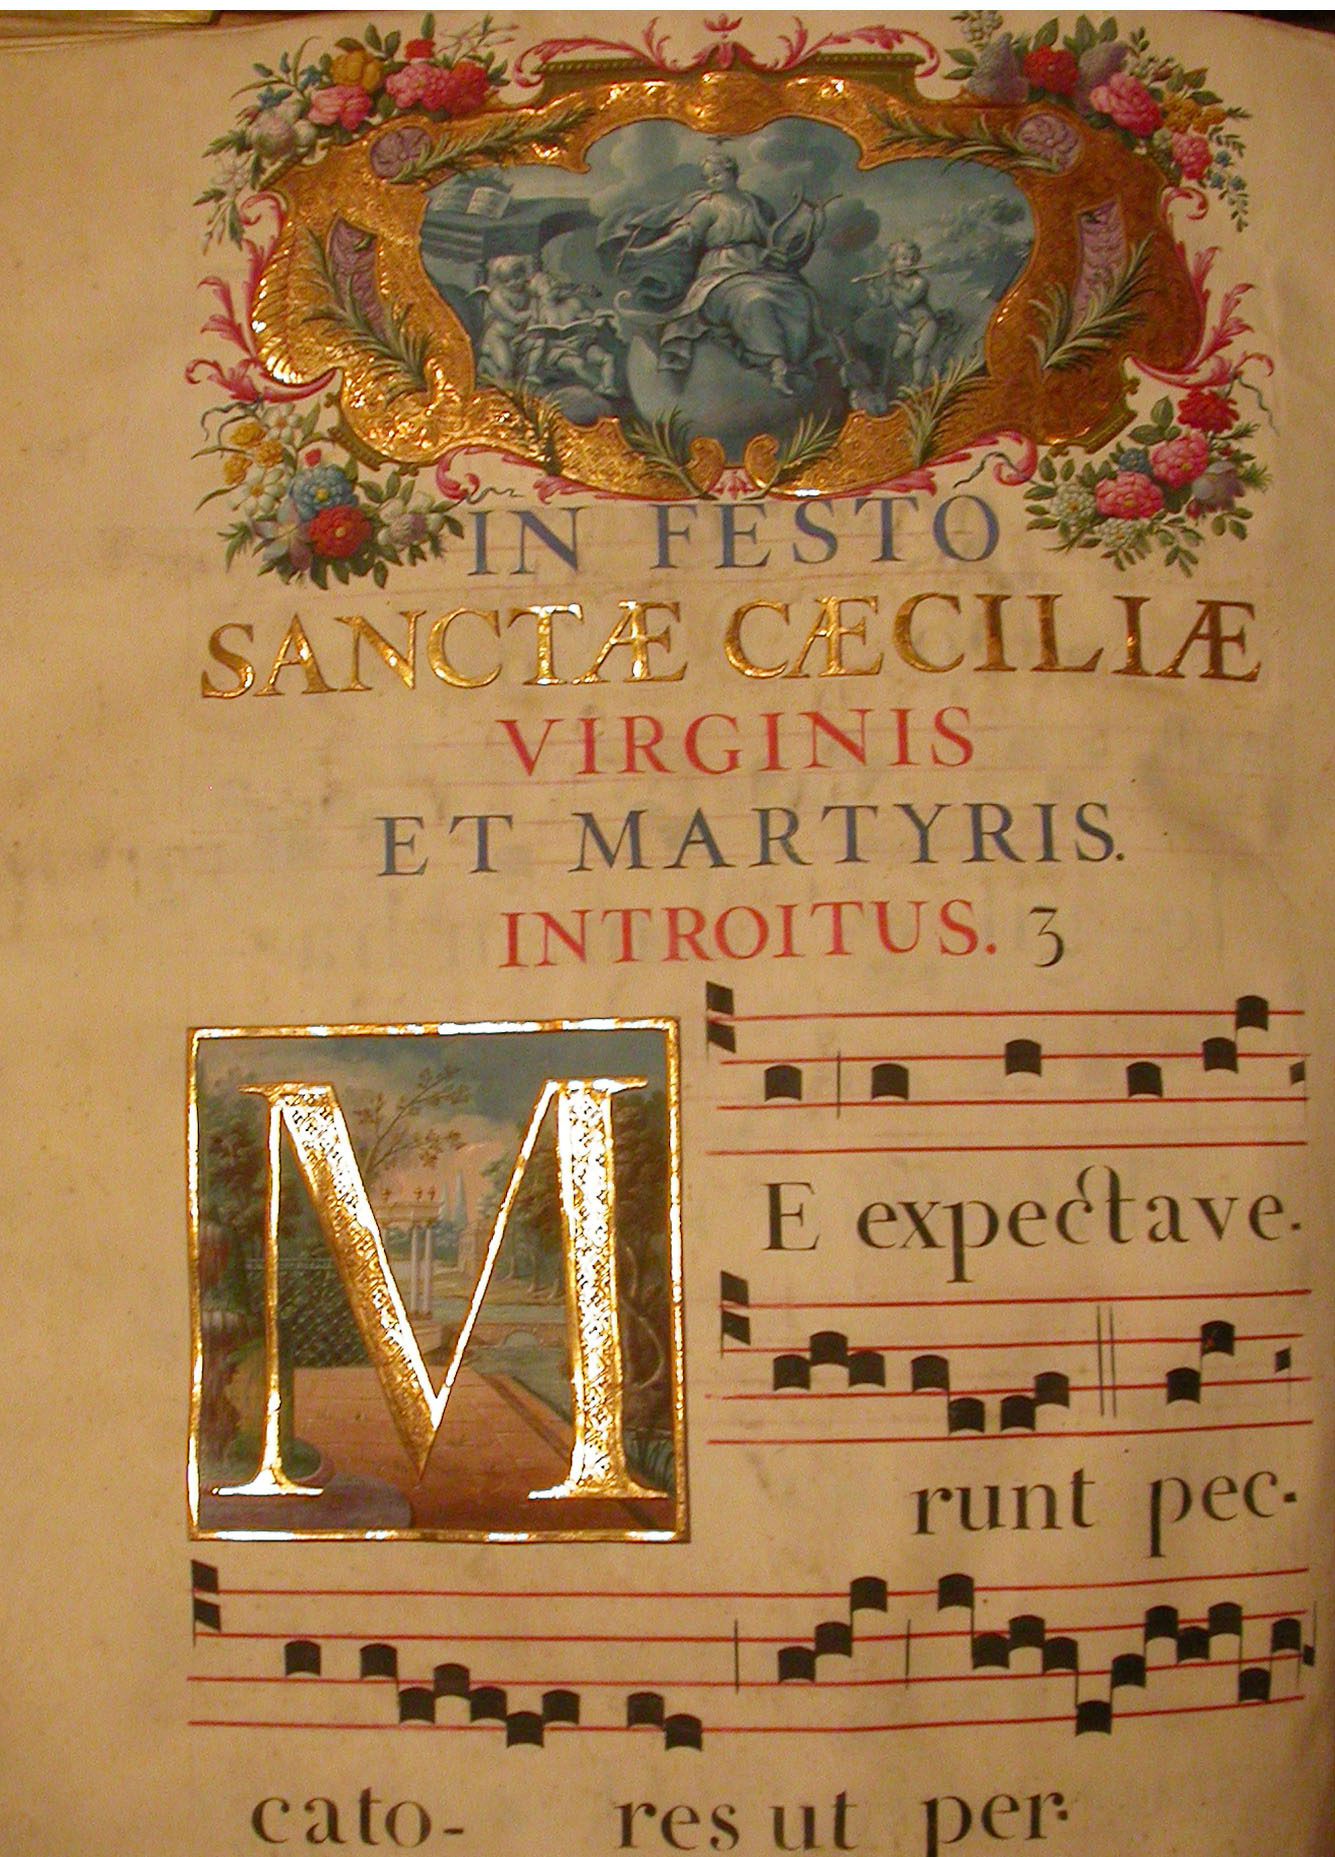 IN FESTO
SANCTÆ CÆCILIÆ
VIRGINIS
ET MARTYRIS.
INTROITUS. 3
ME expectave.
runt pec.
cato- res ut per.